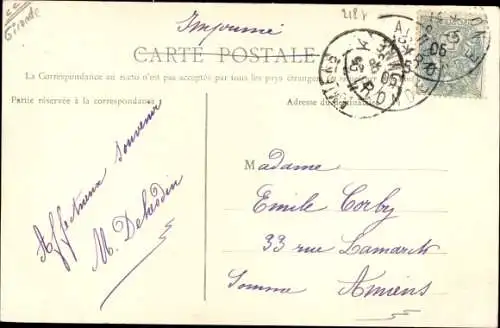 Gironde
Imprimé
2181
CARTE POSTALE
La Correspondance au recto n'est pas acceptée par tous les pays étrangers
Partie réservée à la correspondance
Adresse du destinataire
Affectueux Souvenir
M. Debusdin
Madame
Emile Corby
33 rue Lamarck
Somme Amiens
AMIENS
05
GIRONDE
05